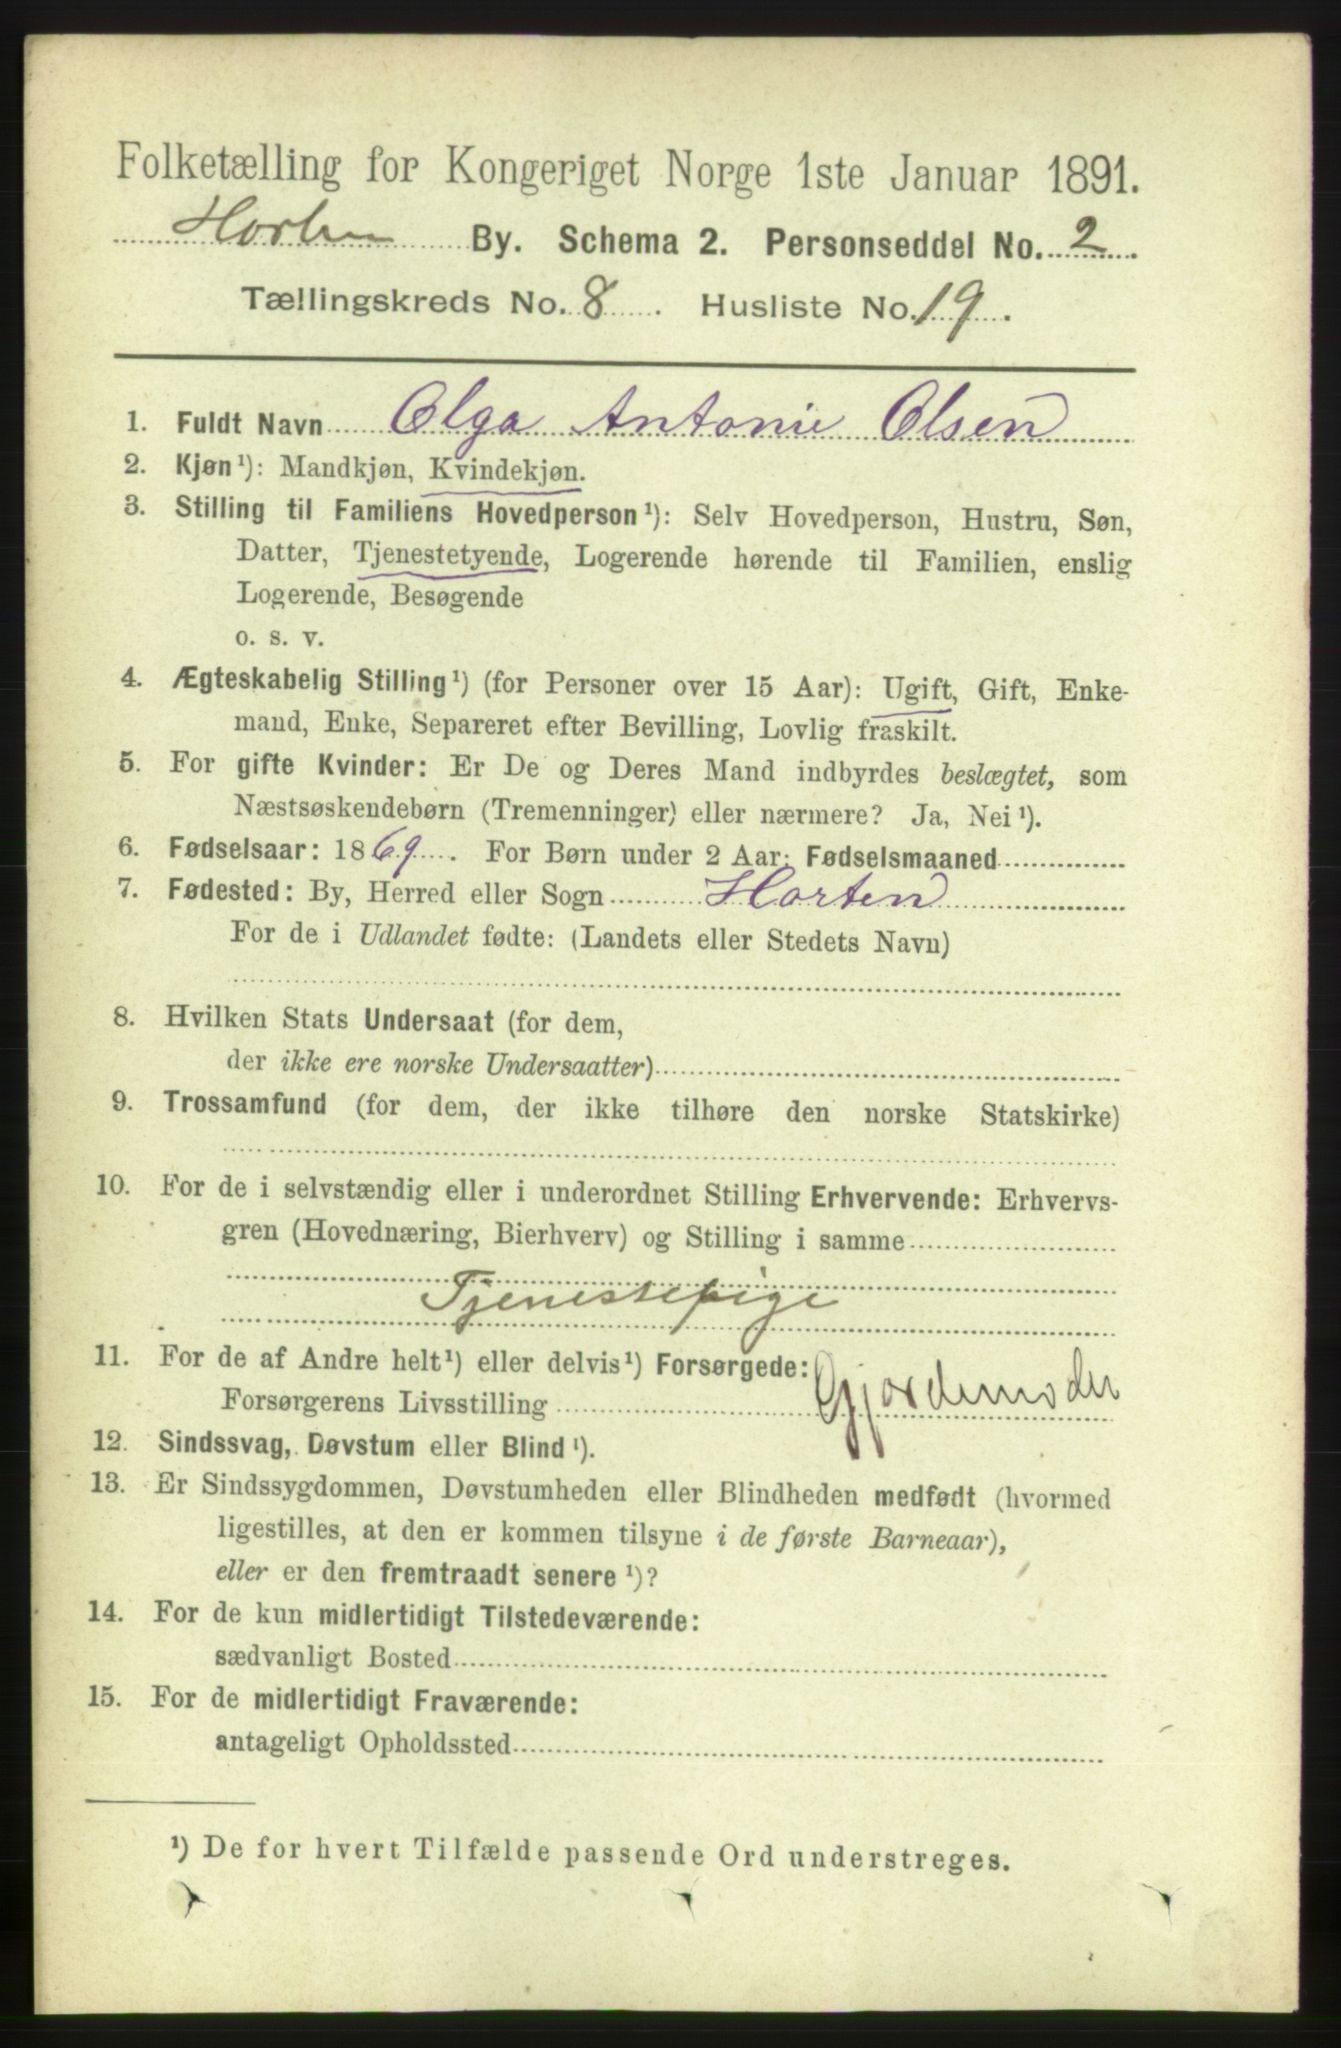 Folketælling for Kongeriget Norge 1ste Januar 1891.
Horten By. Schema 2. Personseddel No. 2
Tællingskreds No. 8. Husliste No. 19.
1. Fuldt Navn Olga Antonie Olsen
2. Kjøn¹): Mandkjøn, Kvindekjøn.
3. Stilling til Familiens Hovedperson¹): Selv Hovedperson, Hustru, Søn,
Datter, Tjenestetyende, Logerende hørende til Familien, enslig
Logerende, Besøgende
o. s. v.
4. Ægteskabelig Stilling¹) (for Personer over 15 Aar): Ugift, Gift, Enke-
mand, Enke, Separeret efter Bevilling, Lovlig fraskilt.
5. For gifte Kvinder: Er De og Deres Mand indbyrdes beslægtet, som
Næstsøskendebørn (Tremenninger) eller nærmere? Ja, Nei¹).
6. Fødselsaar: 1869. For Børn under 2 Aar: Fødselsmaaned
7. Fødested: By, Herred eller Sogn Horten
For de i Udlandet fødte: (Landets eller Stedets Navn)
8. Hvilken Stats Undersaat (for dem,
der ikke ere norske Undersaatter)
9. Trossamfund (for dem, der ikke tilhøre den norske Statskirke)
10. For de i selvstændig eller i underordnet Stilling Erhvervende: Erhvervs-
gren (Hovednæring, Bierhverv) og Stilling i samme
Tjenestepige
11. For de af Andre helt¹) eller delvis¹) Forsørgede:
Forsørgerens Livsstilling Gjordemoder
12. Sindssvag, Døvstum eller Blind¹).
13. Er Sindssygdommen, Døvstumheden eller Blindheden medfødt (hvormed
ligestilles, at den er kommen tilsyne i de første Barneaar),
eller er den fremtraadt senere¹)?
14. For de kun midlertidigt Tilstedeværende:
sædvanligt Bosted
15. For de midlertidigt Fraværende:
antageligt Opholdssted
¹) De for hvert Tilfælde passende Ord understreges.